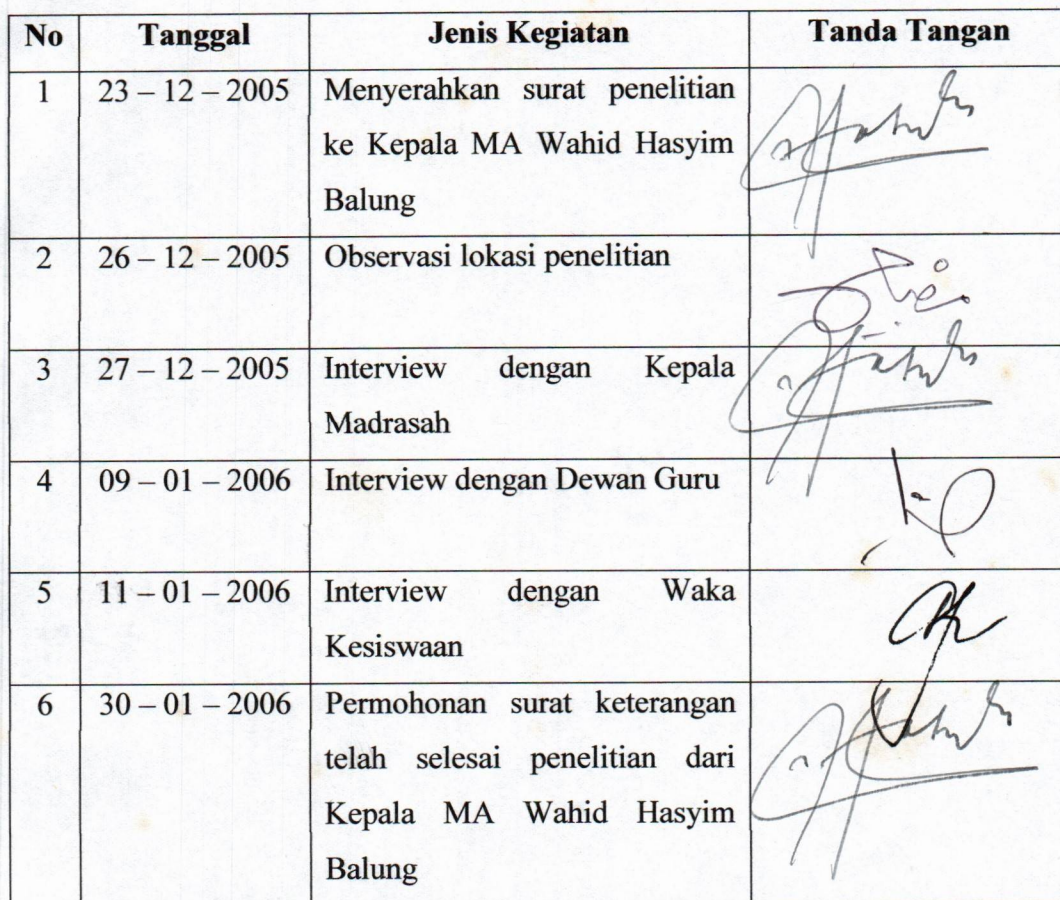 No Tanggal Jenis Kegiatan Tanda Tangan
1 23 – 12 – 2005 Menyerahkan surat penelitian
ke Kepala MA Wahid Hasyim
Balung
2 26 – 12 – 2005 Observasi lokasi penelitian
3 27 – 12 – 2005 Interview dengan Kepala
Madrasah
4 09 – 01 – 2006 Interview dengan Dewan Guru
5 11 – 01 – 2006 Interview dengan Waka
Kesiswaan
6 30 – 01 – 2006 Permohonan surat keterangan
telah selesai penelitian dari
Kepala MA Wahid Hasyim
Balung